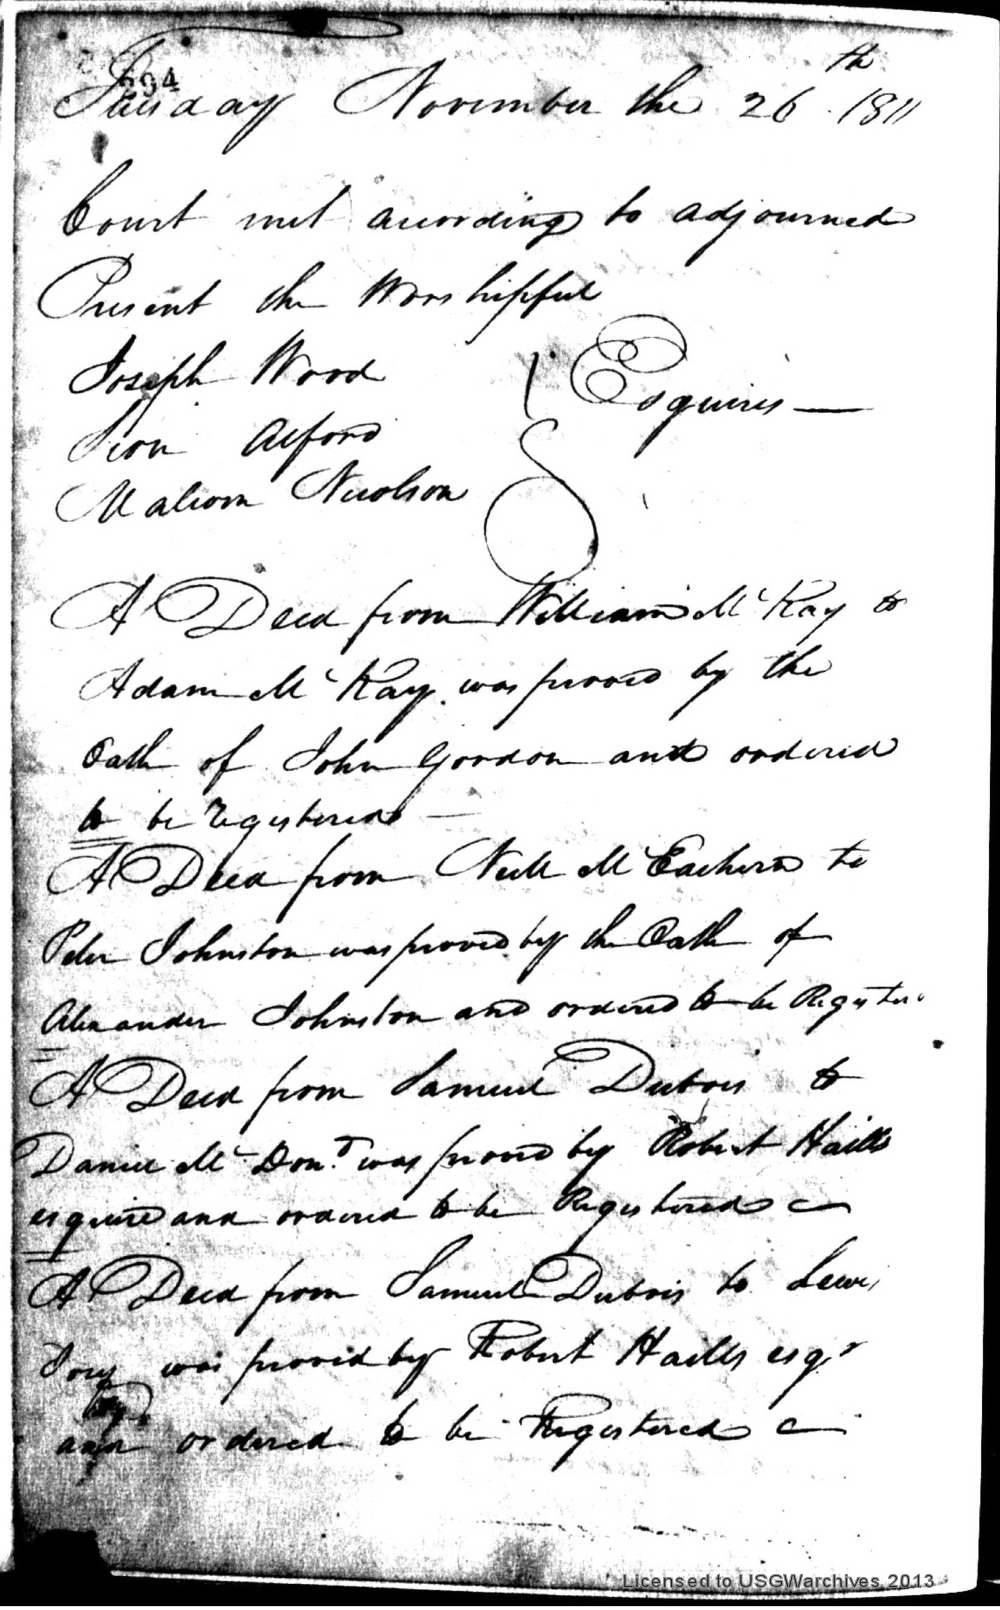 694
Tuesday November the 26th 1811
Court met according to adjournd
Present the Worshipful
Joseph Wood
Sion Alford } Esquires —
Malcom Nicolson
A Deed from William McKay to
Adam McKay was proved by the
Oath of John Gordon and ordered
to be registered —
A Deed from Neill McEachern to
Peter Johnston was proved by the Oath of
Alexander Johnston and ordered to be Register
A Deed from Samuel Dubois to
Daniel McDond was proved by Robert Haills
esquire and ordered to be Registered
A Deed from Samuel Dubois to Lewis
was proved by Robert Haills esqr
and ordered to be Registered
Licensed to USGWarchives 2013